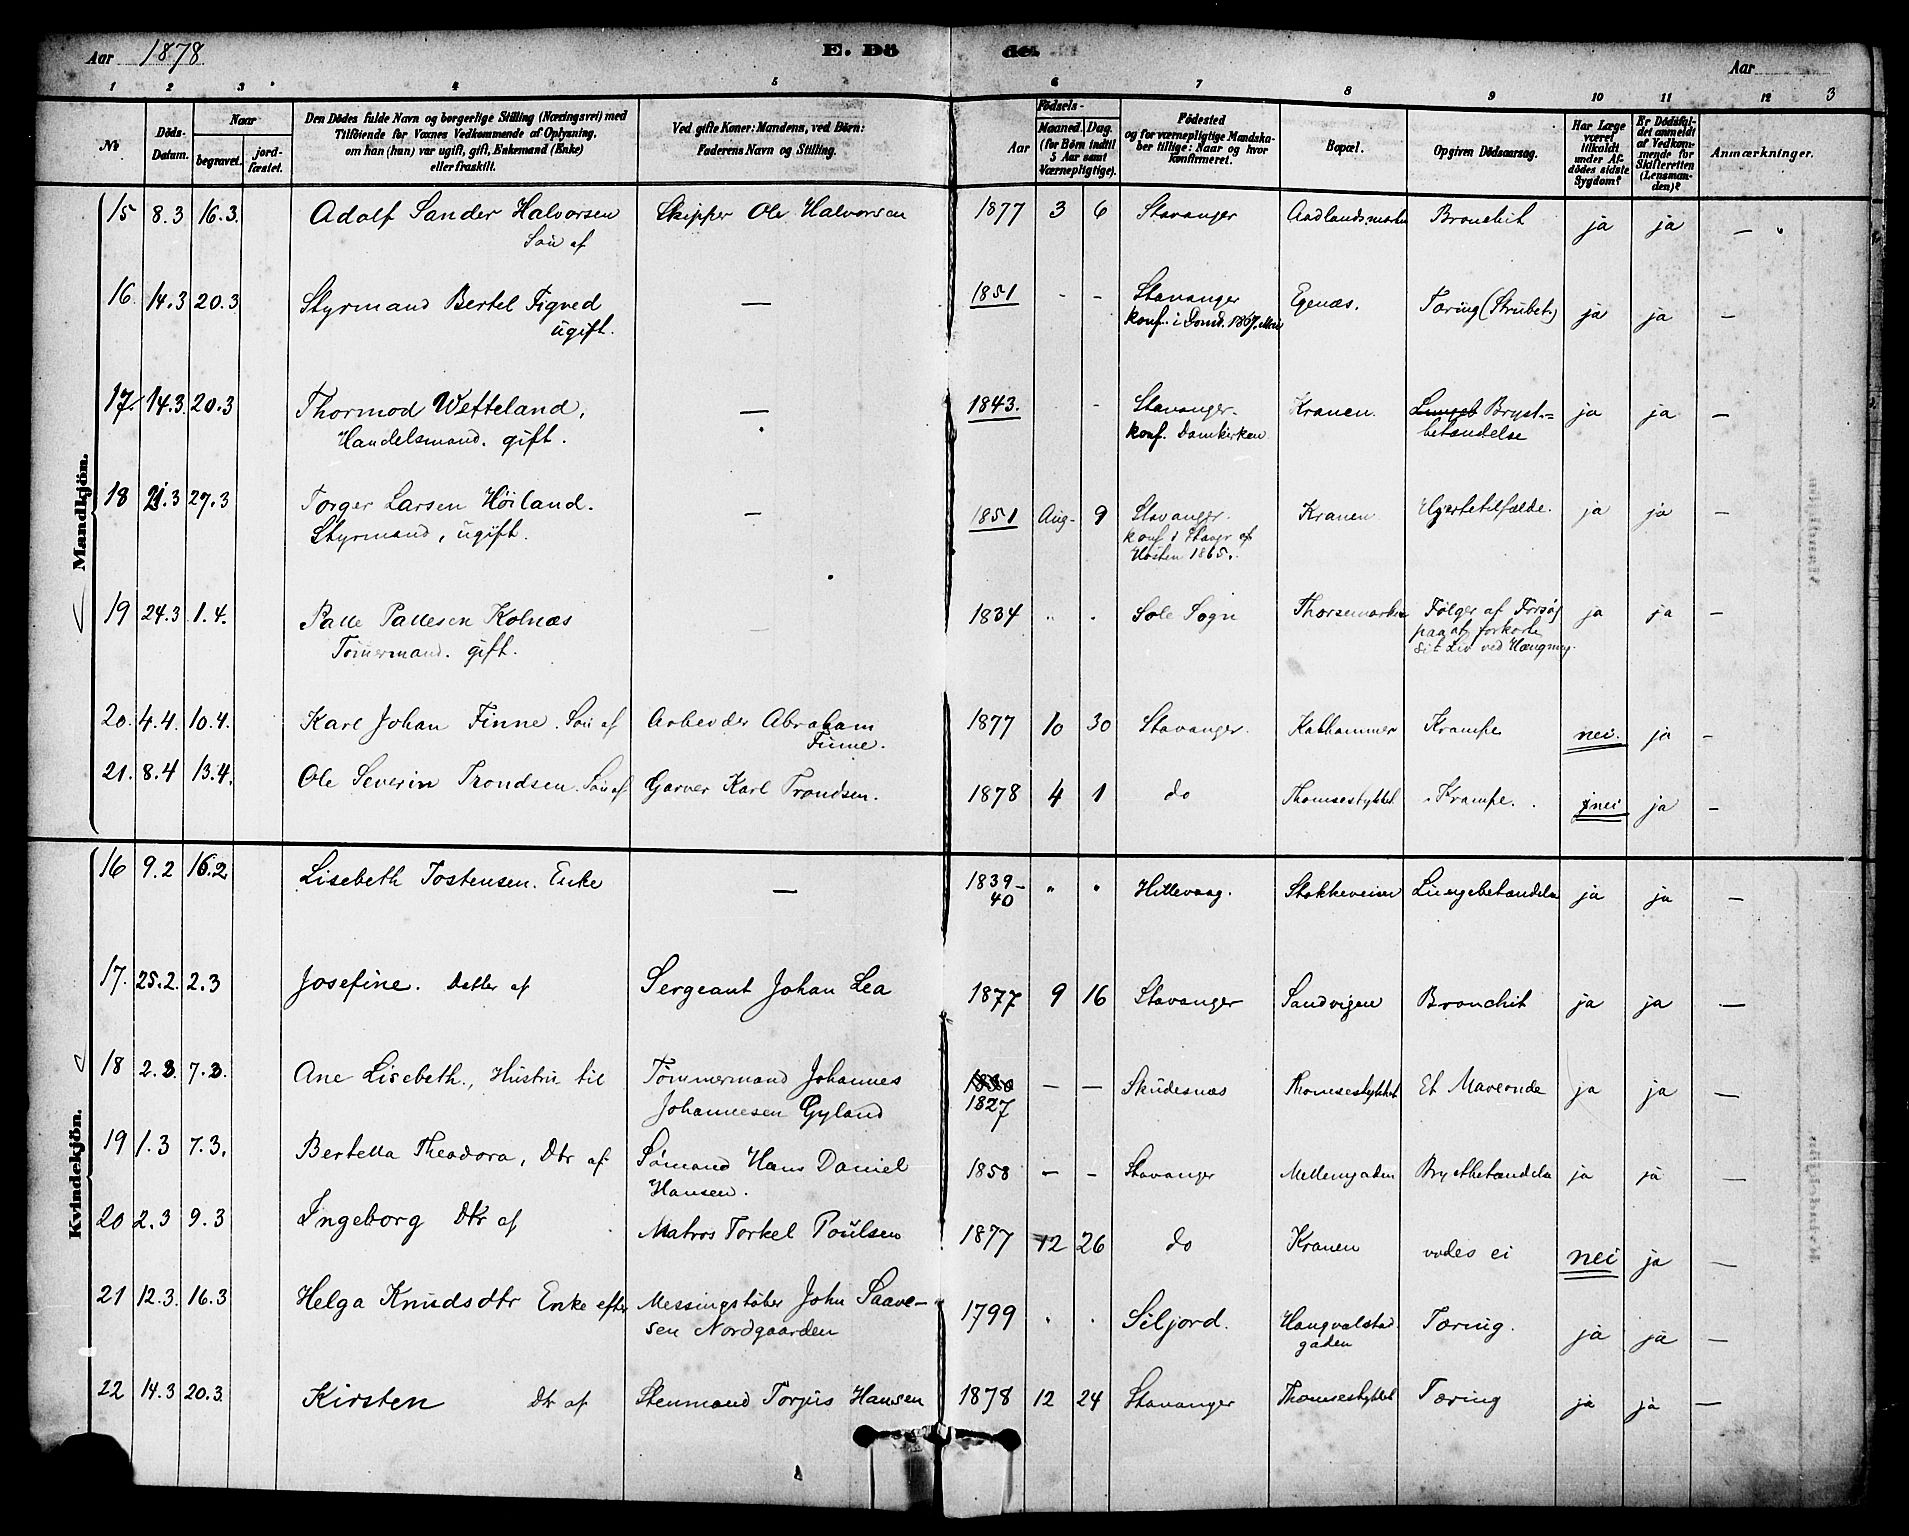 Aar 1878. E. Dö de. Aar
1 2 3 4 5 6 7 8 9 10 11 12 3
No Döds-Datum. Naar begravet. jord-fæstet. Den Dödes fulde Navn og borgerlige Stilling (Næringsvei) med Tilföiende for Voxnes Vedkommende af Oplysning, om han (hun) var ugift, gift, Enkemand (Enke) eller fraskilt. Ved gifte Koner: Mandens, ved Börn: Faderens Navn og Stilling. Födsels- Aar Maaned. Dag. (for Börn indtil 5 Aar samt Værnepligtige). Födested og for værnepligtige Mandskaber tillige: Naar og hvor konfirmeret. Bopæl. Opgiven Dödsaarsag. Har Læge været tilkaldt under Afdödes sidste Sygdom? Er Dödsfaldet anmeldt af Vedkommende for Skifteretten (Lensmanden)? Anmærkninger.
Mandkjön.
15 8.3 16.3. Adolf Sander Halvorsen Skipper Ole Halvorsen 1877 3 6 Stavanger Bronchit ja ja —
Sön af
16 14.3 20.3 Styrmand Bertel Tigved — 1851 - - Stavanger Egenæs. Tæring (Strubet.) ja ja —
ugift. konf. i Domk. 1867.
17. 14.3 20.3 Thormod Wetteland, — 1843. - Stavanger. Kranen. Bryst-= ja ja —
Handelsmand. gift. konf. Domkirken betændelse
18 21.3 27.3 Torger Larsen Höiland. — 1851 Aug- 9 Stavanger. Kranen Hjertetilfælde. ja ja —
Styrmand, ugift. konf i Stavgr af
Hösten 1865.
19 24.3 1.4. Palle Pallesen Kolnæs — 1834 " . Sole Sogn Følger af Forsøg ja ja —
Tömmermand. gift. paa at forkorte
sit Liv ved Hængning.
20. 4.4. 10.4. Karl Johan Finne. Sön af Arbeider Abraham 1877 10 30 Stavanger. Kathammer Krampe nei. ja —
Finne.
21. 8.4 13.4. Ole Severin Trondsen. Sön af Garver Karl Trondsen. 1878 4 1 do Thomsestykket Krampe. nei ja —
Kvindekjön.
16 9.2 16.2 Lisebeth Tostensen. Enke — 1839- " " Hillevaag. Stokkeveien Lungebetændelse ja ja —
40
17. 25.2. 2.3 Josefine. Datter af Sergeant Johan Lea 1877 9 16 Stavanger Sandvigen Bronchit ja ja —
18 2.3. 7.3. Ane Lisebeth., Hustru til Tömmermand Johannes — — Skudesnæs Thomsestykket Et Maveonde ja ja —
Johannesen Gyland 1827
19 1.3 7.3. Bertella Theodora, Dtr af Sömand Hans Daniel 1858 — - Stavanger Mellemgaden Brystbetændelse ja ja —
Hansen.
20 2.3 9.3 Ingeborg Dtr af Matros Torkel Poulsen 1877 12 26 do Kranen vides ei nei ja —
21 12.3. 16.3 Helga Knudsdtr Enke efter Messingstöber John Saave- 1799 . . Siljord. Haugvalstad Tæring. ja ja —
sen Nordgaarden gaden
22 14.3 20.3 Kirsten Dtr af Stenmand Torjus Hansen 1878 12 24 Stavanger Thomsestykket Tæring ja ja —